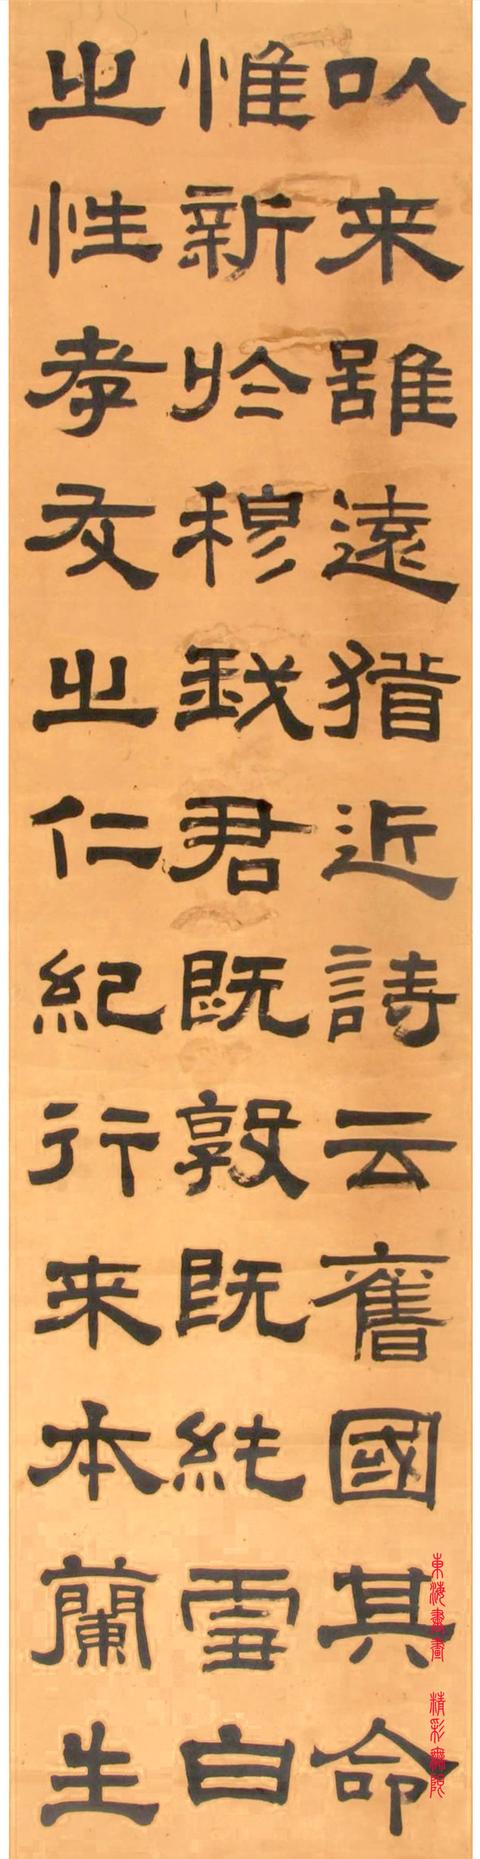 以来雖遠猶近詩云舊國其命
惟新於穆我君既敦既純雪白
之性孝友之仁紀行来本蘭生
東海書畫 精彩無限